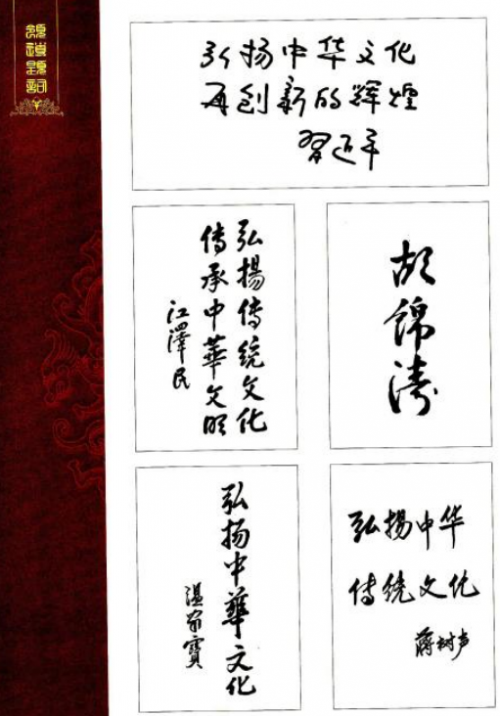 領導題詞
弘扬中华文化
再创新的辉煌
習近平
弘揚传统文化
传承中華文明
江澤民
胡錦涛
弘扬中華文化
温家寶
弘揚中华
传统文化
蒋树声